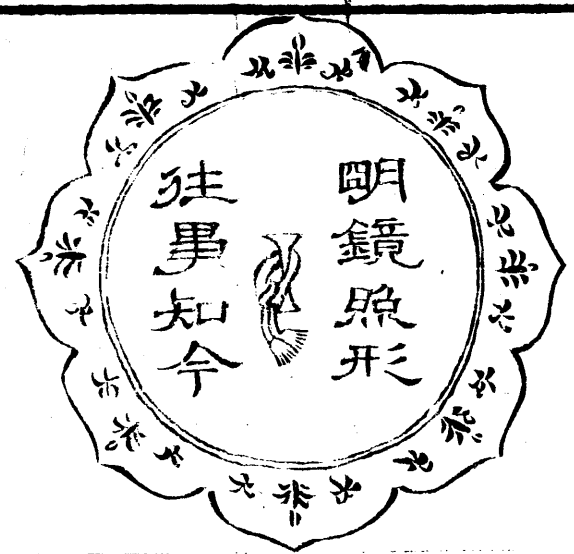 明鏡照形
往事知今